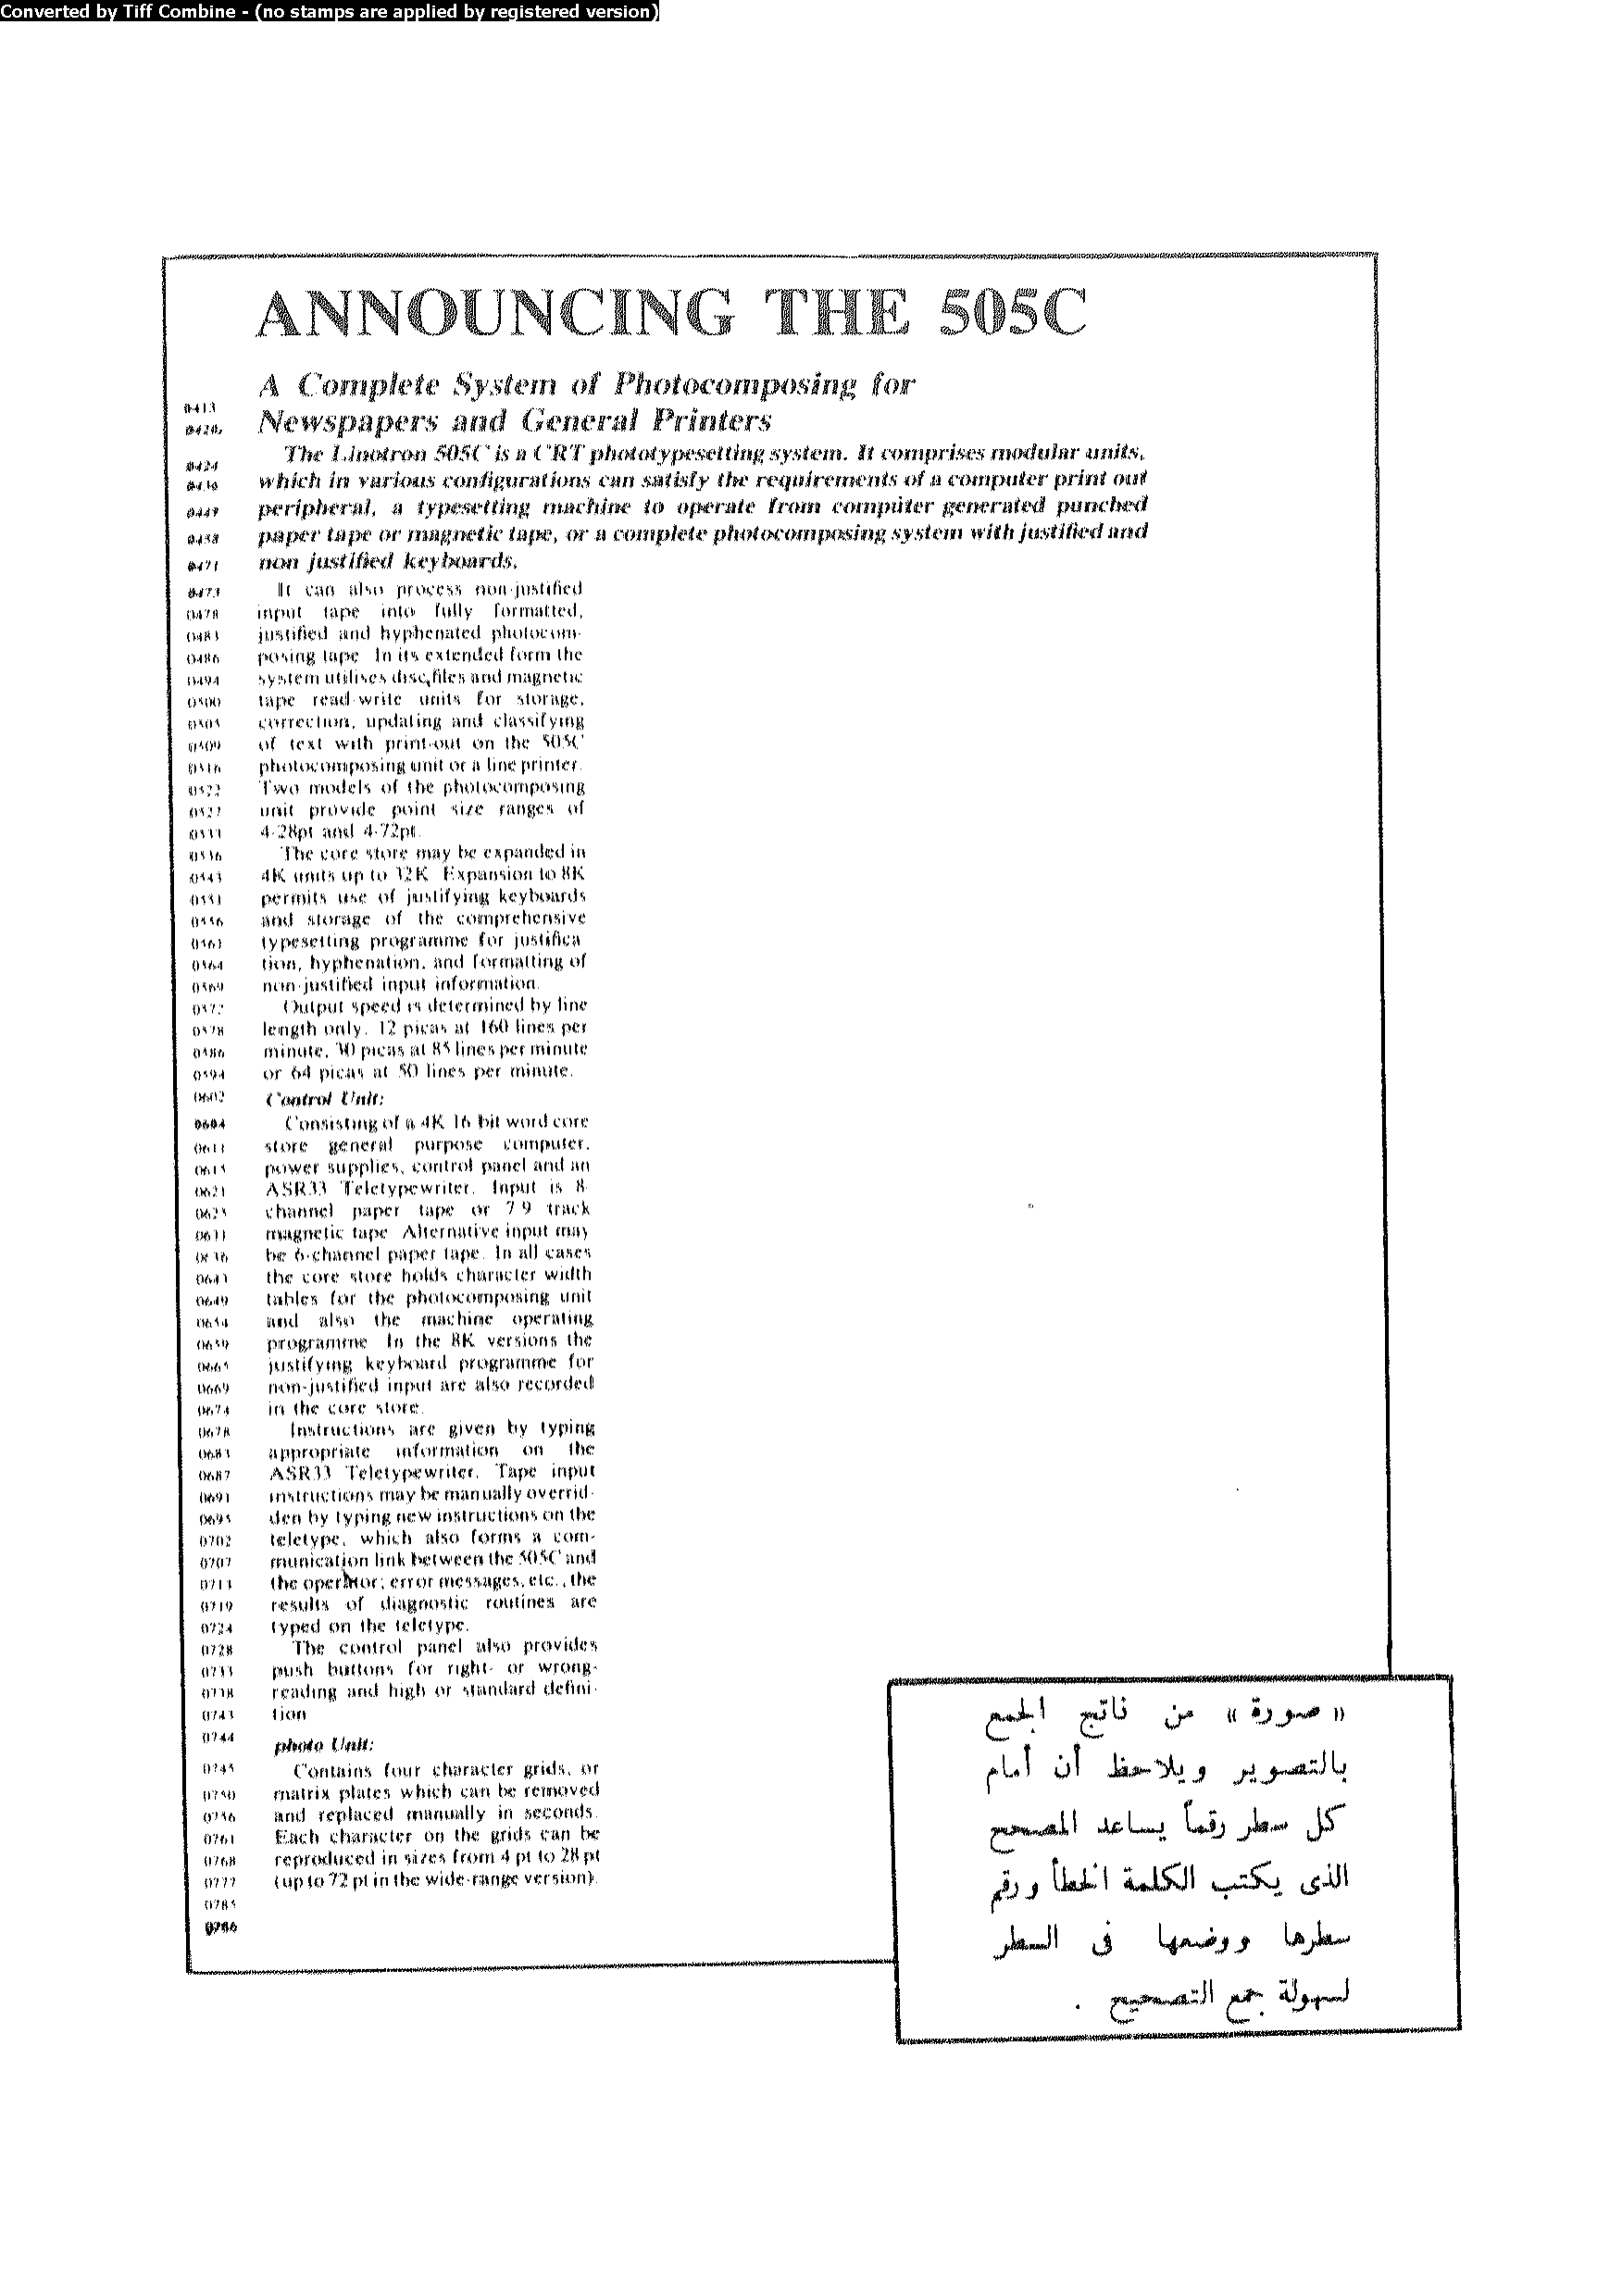 Converted by Tiff Combine - (no stamps are applied by registered version)
ANNOUNCING THE 505C
A Complete System of Photocomposing for
0413
Newspapers and General Printers
0420
0424 The Linotron 505C is a CRT phototypesetting system. It comprises modular units,
0430 which in various configurations can satisfy the requirements of a computer print out
0449 peripheral, a typesetting machine to operate from computer generated punched
0458 paper tape or magnetic tape, or a complete photocomposing system with justified and
0471 non justified keyboards.
0473 It can also process non-justified
0478 input tape into fully formatted,
0483 justified and hyphenated photocom-
0486 posing tape In its extended form the
0494 system utilises disc files and magnetic
0500 tape read-write units for storage,
0505 correction, updating and classifying
0509 of text with print-out on the 505C
0516 photocomposing unit or a line printer.
0522 Two models of the photocomposing
0527 unit provide point size ranges of
0533 4-28pt and 4-72pt.
0536 The core store may be expanded in
0543 4K units up to 32K Expansion to 8K
0551 permits use of justifying keyboards
0556 and storage of the comprehensive
0561 typesetting programme for justifica
0564 tion, hyphenation, and formatting of
0569 non-justified input information.
0572 Output speed is determined by line
0578 length only. 12 picas at 160 lines per
0586 minute, 30 picas at 85 lines per minute
0594 or 64 picas at 50 lines per minute.
0602 Control Unit:
0604 Consisting of a 4K 16 bit word core
0611 store general purpose computer,
0615 power supplies, control panel and an
0621 ASR33 Teletypewriter. Input is 8
0625 channel paper tape or 7 9 track
0631 magnetic tape Alternative input may
0636 be 6-channel paper tape. In all cases
0643 the core store holds character width
0649 tables for the photocomposing unit
0654 and also the machine operating
0659 programme In the 8K versions the
0665 justifying keyboard programme for
0669 non-justified input are also recorded
0674 in the core store.
0678 Instructions are given by typing
0683 appropriate information on the
0687 ASR33 Teletypewriter. Tape input
0691 instructions may be manually overrid-
0695 den by typing new instructions on the
0702 teletype, which also forms a com-
0707 munication link between the 505C and
0713 the operator; error messages, etc., the
0719 results of diagnostic routines are
0724 typed on the teletype.
0728 The control panel also provides
0733 push buttons for right- or wrong-
0738 reading and high or standard defini-
0743 tion
0744 photo Unit:
0745 Contains four character grids, or
0750 matrix plates which can be removed
0756 and replaced manually in seconds.
0761 Each character on the grids can be
0768 reproduced in sizes from 4 pt to 28 pt
0777 (up to 72 pt in the wide-range version).
0785
0786
« صورة » من ناتج الجمع
بالتصوير ويلاحظ أن أمام
كل سطر رقماً يساعد المصحح
الذى يكتب الكلمة الخطأ ورقم
سطرها ووضعها فى السطر
لسهولة جمع التصحيح .